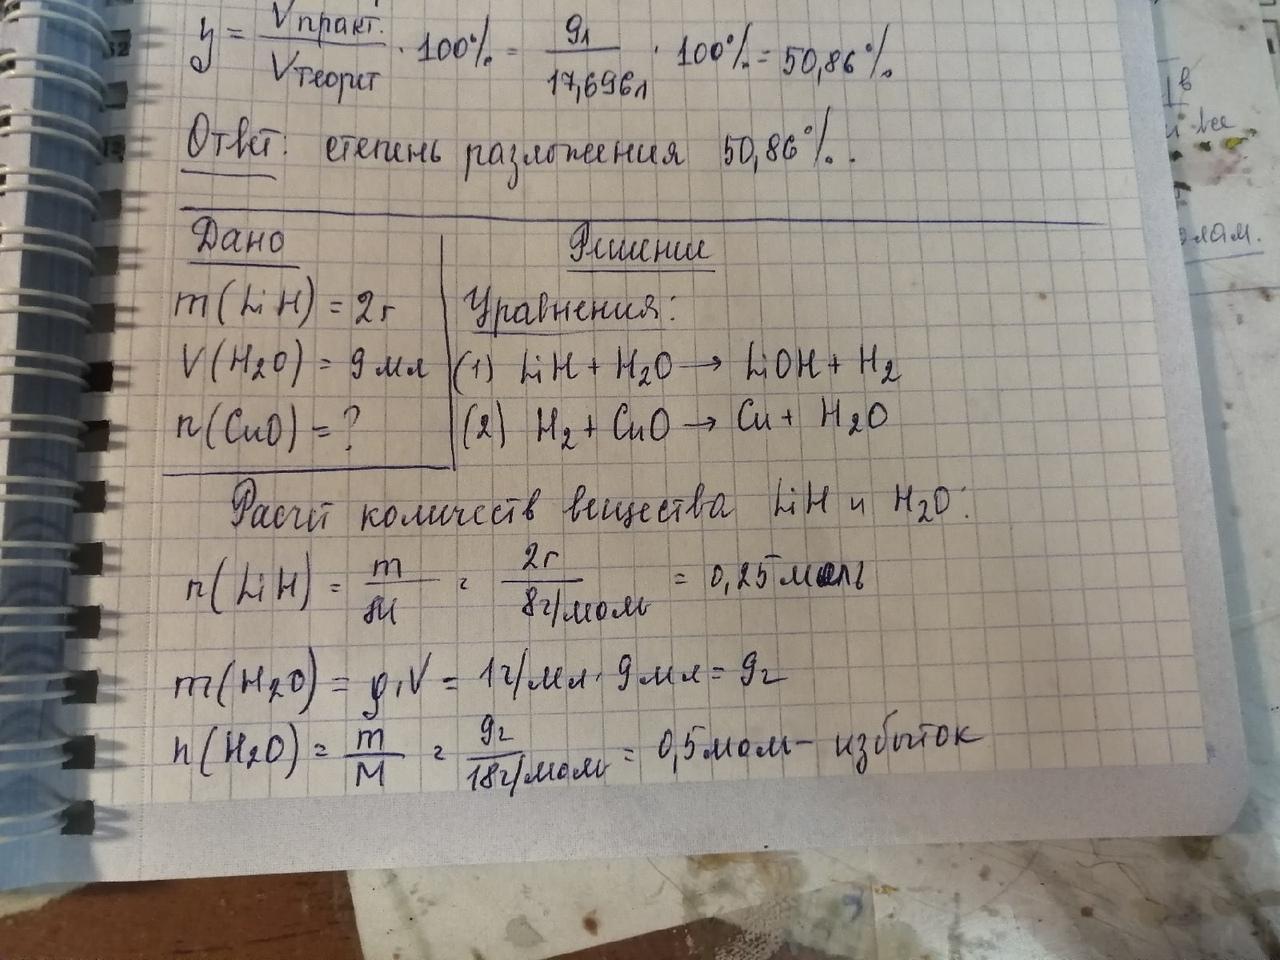 y = Vпракт. / Vтеорит · 100% = 9л / 17,696л · 100% = 50,86%
Ответ: степень разложения 50,86%.
Дано
Решение
m(LiH) = 2г
Уравнения:
V(H2O) = 9 мл
(1) LiH + H2O → LiOH + H2
n(CuO) = ?
(2) H2 + CuO → Cu + H2O
Расчёт количеств вещества LiH и H2O:
n(LiH) = m / M = 2г / 8г/моль = 0,25 моль
m(H2O) = ρ·V = 1г/мл · 9 мл = 9г
n(H2O) = m / M = 9г / 18г/моль = 0,5 моль - избыток
в
все
олам.